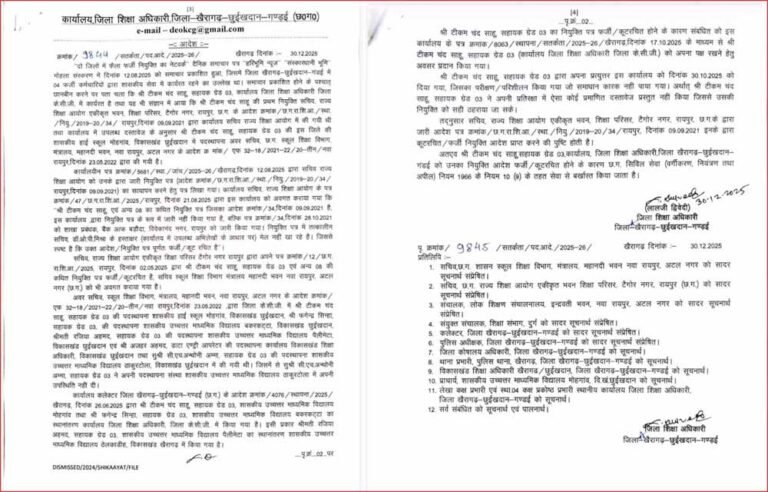 [3]
कार्यालय,जिला शिक्षा अधिकारी,जिला-खैरागढ़-छुईखदान-गण्डई (छ0ग0)
e-mail – deokcg@gmail.com
-: आदेश :-
क्रमांक / 9844 /सतर्कता/पद.आदे./2025-26/ खैरागढ़ दिनांक - 30.12.2025
"दो जिलों में फैला फर्जी नियुक्ति का नेटवर्क" दैनिक समाचार पत्र "हरिभूमि न्यूज" "संस्कारधानी भूमि"
मोहला संस्करण में दिनांक 12.08.2025 को समाचार प्रकाशित हुआ, जिसमें जिला खैरागढ़-छुईखदान-गंडई में
04 फर्जी कर्मचारियों द्वारा शासकीय सेवा में कार्यरत रहने का उल्लेख था। समाचार प्रकाशित होने के पश्चात्
छानबीन करने पर पता चला कि श्री टीकम चंद साहू, सहायक ग्रेड 03, कार्यालय जिला शिक्षा अधिकारी जिला
के.सी.जी. में कार्यरत है तथा यह भी संज्ञान में आया कि श्री टीकम चंद साहू की प्रथम नियुक्ति सचिव, राज्य
शिक्षा आयोग एकीकृत भवन, शिक्षा परिसर, टैगोर नगर, रायपुर, छ.ग. के आदेश क्रमांक/छ.ग.रा.शि.आ./
स्था./नियु./2019-20/34/रायपुर, दिनांक 09.09.2021 द्वारा कार्यालय सचिव राज्य शिक्षा आयोग में की गयी थी
तथा कार्यालय में उपलब्ध दस्तावेज के अनुसार श्री टीकम चंद साहू, सहायक ग्रेड 03 की इस जिले की
शासकीय हाई स्कूल मोहगांव, विकासखण्ड छुईखदान में पदस्थापना अवर सचिव, छ.ग. स्कूल शिक्षा विभाग,
मंत्रालय, महानदी भवन, नवा रायपुर, अटल नगर के आदेश क्रमांक / एफ 32-18/2021-22/20-तीन/नवा
रायपुर,दिनांक 23.05.2022 द्वारा की गयी है।
कार्यालयीन पत्र क्रमांक/5681/स्था./जांच/2025-26/खैरागढ़,दिनांक 12.08.2025 द्वारा सचिव राज्य
शिक्षा आयोग को उनके द्वारा जारी नियुक्ति पत्र (आदेश क्रमांक/छ.ग.रा.शि.आ./स्था./नियु./2019-20/34/
रायपुर, दिनांक 09.09.2021) का सत्यापन करने हेतु पत्र लिखा गया। कार्यालय सचिव, राज्य शिक्षा आयोग के पत्र
क्रमांक/47/छ.ग.रा.शि.आ./2025/रायपुर, दिनांक 21.08.2025 द्वारा इस कार्यालय को अवगत कराया गया कि
"श्री टीकम चंद साहू, एवं अन्य 08 का कथित नियुक्ति पत्र जिसका आदेश क्रमांक/34,दिनांक 09.09.2021 है,
इस कार्यालय द्वारा नियुक्ति पत्र के रूप में जारी नहीं किया गया है, बल्कि पत्र क्रमांक/34 दिनांक 28.10.2021
को शाखा प्रबंधक, बैंक आफ बड़ौदा, विवेकानंद नगर, रायपुर को जारी किया गया। नियुक्ति पत्र में तत्कालीन
सचिव डॉ.ओ.पी.मिश्रा के हस्ताक्षर (कार्यालय में उपलब्ध अभिलेखों के आधार पर) मेल नहीं खा रहे हैं। जिससे
स्पष्ट है कि उक्त आदेश/नियुक्ति पत्र पूर्णतः फर्जी/कूट रचित हैं"।
सचिव, राज्य शिक्षा आयोग एकीकृत शिक्षा परिसर टैगोर नगर रायपुर द्वारा अपने पत्र क्रमांक/12/छ.ग.
रा.शि.आ./2025, रायपुर, दिनांक 02.05.2025 द्वारा श्री टीकम चंद साहू, सहायक ग्रेड 03 एवं अन्य 08 की
कथित नियुक्ति पत्र फर्जी/कूटरचित है, सचिव स्कूल शिक्षा विभाग मंत्रालय महानदी भवन नवा रायपुर, अटल
नगर (छ.ग.) को भी अवगत कराया गया है।
अवर सचिव, स्कूल शिक्षा विभाग, मंत्रालय, महानदी भवन, नवा रायपुर, अटल नगर के आदेश क्रमांक/
एफ 32-18/2021-22/20-तीन/नवा रायपुर,दिनांक 23.05.2022 द्वारा जिला के.सी.जी. में श्री टीकम चंद
साहू, सहायक ग्रेड 03 की पदस्थापना शासकीय हाई स्कूल मोहगांव, विकासखण्ड छुईखदान, श्री फगेन्द्र सिन्हा,
सहायक ग्रेड 03, की पदस्थापना शासकीय उच्चतर माध्यमिक विद्यालय बकरकट्टा, विकासखण्ड छुईखदान,
श्रीमती रजिया अहमद, सहायक ग्रेड 03 की पदस्थापना शासकीय उच्चतर माध्यमिक विद्यालय पैलीमेटा,
विकासखण्ड छुईखदान एवं श्री अजहर अहमद, डाटा एण्ट्री आपरेटर की पदस्थापना कार्यालय विकासखण्ड शिक्षा
अधिकारी, विकासखण्ड छुईखदान तथा सुश्री सी.एच.अन्थोनी अम्मा, सहायक ग्रेड 03 की पदस्थापना शासकीय
उच्चतर माध्यमिक विद्यालय ठाकुरटोला, विकासखण्ड छुईखदान में की गयी थी। जिसमें से सुश्री सी.एच.अन्थोनी
अम्मा, सहायक ग्रेड 03 ने अपनी पदस्थापना संस्था शासकीय उच्चतर माध्यमिक विद्यालय ठाकुरटोला में अपनी
उपस्थिति नहीं दी।
कार्यालय कलेक्टर जिला खैरागढ़-छुईखदान-गण्डई (छ.ग.) के आदेश क्रमांक/4076/स्थापना/2025/
खैरागढ़, दिनांक 26.06.2025 द्वारा श्री टीकम चंद साहू, सहायक ग्रेड 03, शासकीय उच्चतर माध्यमिक विद्यालय
मोहगांव तथा श्री फगेन्द्र सिन्हा, सहायक ग्रेड 03, शासकीय उच्चतर माध्यमिक विद्यालय बकरकट्टा का
स्थानांतरण कार्यालय जिला शिक्षा अधिकारी, जिला के.सी.जी. में किया गया है। इसी प्रकार श्रीमती रजिया
अहमद, सहायक ग्रेड 03, शासकीय उच्चतर माध्यमिक विद्यालय पैलीमेटा का स्थानांतरण शासकीय उच्चतर
माध्यमिक विद्यालय ठेलकाडीह, विकासखण्ड खैरागढ़ में किया गया है।
...पृ.क्र...02...पर
DISMISSED/2024/SHIKAAYAT/FILE
[4]
...पृ.क्र...02...
श्री टीकम चंद साहू, सहायक ग्रेड 03 का नियुक्ति पत्र फर्जी/कूटरचित होने के कारण संबंधित को इस
कार्यालय के पत्र क्रमांक/8063/स्थापना/2025-26/खैरागढ़,दिनांक 17.10.2025 के माध्यम से श्री
टीकम चंद साहू, सहायक ग्रेड 03 (कार्यालय जिला शिक्षा अधिकारी जिला के.सी.जी.) को अपना पक्ष रखने हेतु
अवसर प्रदान किया गया।
श्री टीकम चंद साहू, सहायक ग्रेड 03 द्वारा अपना प्रत्युत्तर इस कार्यालय को दिनांक 30.10.2025 को
दिया गया, जिसका परीक्षण/परिशीलन किया गया जो समाधान कारक नहीं पाया गया। अर्थात् श्री टीकम चंद
साहू, सहायक ग्रेड-03 ने अपनी प्रतिरक्षा में ऐसा कोई प्रमाणित दस्तावेज प्रस्तुत नहीं किया जिससे उसकी
नियुक्ति को सही ठहराया जा सके।
तद्नुसार सचिव, राज्य शिक्षा आयोग एकीकृत भवन, शिक्षा परिसर, टैगोर नगर, रायपुर, छ.ग. के द्वारा
जारी आदेश पत्र क्रमांक/छ.ग.रा.शि.आ./स्था./नियु./2019-20/34/रायपुर, दिनांक 09.09.2021 इनके द्वारा
कूटरचित/फर्जी नियुक्ति आदेश प्राप्त करने की पुष्टि होती है।
अतएव श्री टीकम चंद साहू,सहायक ग्रेड 03,कार्यालय, जिला शिक्षा अधिकारी,जिला खैरागढ़-छुईखदान-
गण्डई को उनका नियुक्ति आदेश फर्जी/कूटरचित होने के कारण छ.ग. सिविल सेवा (वर्गीकरण, नियंत्रण तथा
अपील) नियम 1966 के नियम 10 (9) के तहत सेवा से बर्खास्त किया जाता है।
30-12-2025
(लालजी द्विवेदी)
जिला शिक्षा अधिकारी
जिला-खैरागढ़-छुईखदान-गण्डई
पृ. क्रमांक/ 9845 /सतर्कता/पद.आदे./2025-26/ खैरागढ़,दिनांक - 30.12.2025
प्रतिलिपि :-
1 सचिव,छ.ग. शासन स्कूल शिक्षा विभाग, मंत्रालय, महानदी भवन नवा रायपुर, अटल नगर को सादर सूचनार्थ संप्रेषित।
2. सचिव, छ.ग. राज्य शिक्षा आयोग एकीकृत भवन, शिक्षा परिसर, टैगोर नगर, रायपुर (छ.ग.) को सादर सूचनार्थ संप्रेषित।
3 संचालक, लोक शिक्षण संचालनालय, इन्द्रावती भवन, नवा रायपुर, अटल नगर को सादर सूचनार्थ संप्रेषित।
4 संयुक्त संचालक, शिक्षा संभाग, दुर्ग को सादर सूचनार्थ संप्रेषित।
5 कलेक्टर, जिला खैरागढ़-छुईखदान-गण्डई को सादर सूचनार्थ संप्रेषित।
6 पुलिस अधीक्षक, जिला खैरागढ़-छुईखदान-गण्डई को सादर सूचनार्थ संप्रेषित।
7 जिला कोषालय अधिकारी, जिला खैरागढ़-छुईखदान-गण्डई को सूचनार्थ।
8 थाना प्रभारी, पुलिस थाना, खैरागढ़, जिला खैरागढ़-छुईखदान-गण्डई को सूचनार्थ।
9 विकासखण्ड शिक्षा अधिकारी खैरागढ़/छुईखदान, जिला खैरागढ़-छुईखदान-गण्डई को सूचनार्थ।
10 प्राचार्य, शासकीय उच्चतर माध्यमिक विद्यालय मोहगांव, वि.खं.छुईखदान को सूचनार्थ।
11 लेखा कक्ष प्रभारी एवं स्था.04 कक्ष प्रकोष्ठ प्रभारी स्थानीय कार्यालय जिला शिक्षा अधिकारी, जिला खैरागढ़-छुईखदान-गण्डई को सूचनार्थ।
12 सर्व संबंधित को सूचनार्थ एवं पालनार्थ।
जिला शिक्षा अधिकारी
जिला-खैरागढ़-छुईखदान-गण्डई